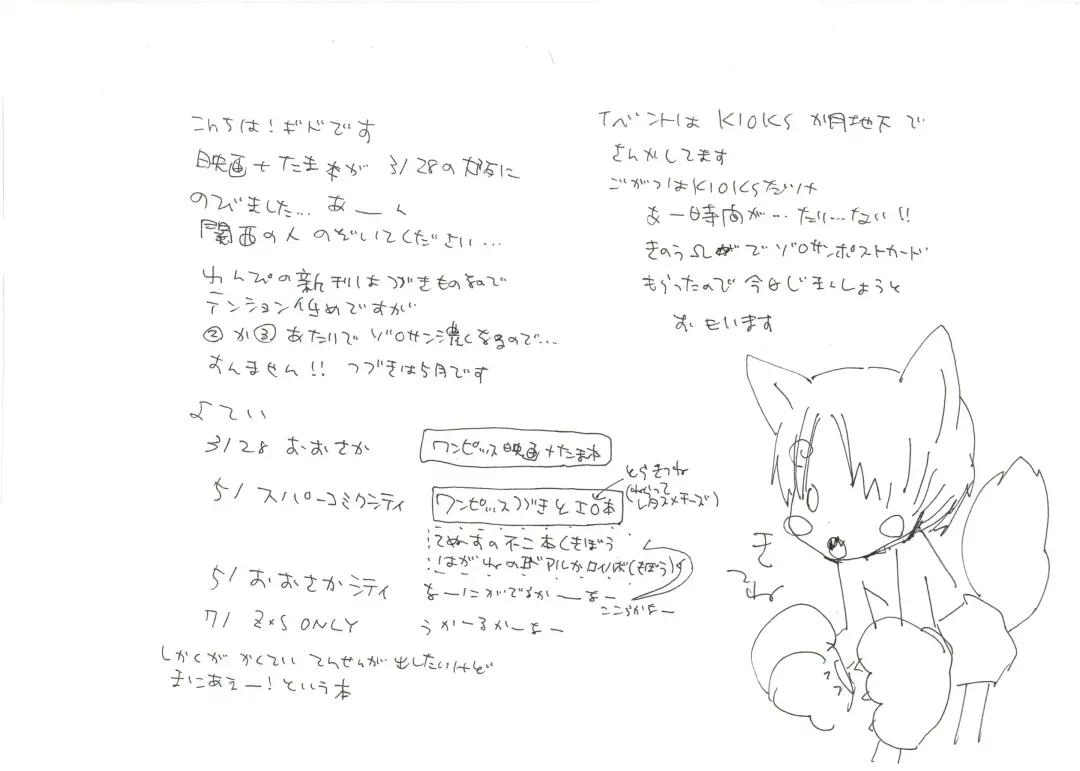 こんちは！ギドです
映画+たま本が 3/28の大阪に
のびました… あーん
関西の人 のぞいてください…
わんぴの新刊はつづきものなので
テンション低めですが
② か ③ あたりで ゾロサン濃くなるので…
すんません!! つづきは5月です
よてい
3/28 おおさか ワンピッス映画+たま本
5/ スパーコミクシティ ワンピッスつづきとエロ本
とらきつね
(ねらって
レタスメチーズ)
てぬーすの不二本(きぼう
はがれの アルかロイ本(きぼう)
5/ おおさかシティ なーにがでるかーなー
ここらかなー
7/ Z×S ONLY うかーるかーなー
しかくが かくてい てんせんが 出したいけど
まにあえー！という本
イベントは KIOKS が地下で
さんかしてます
ごがつはKIOKSだけ
あー時間が…たり…ない!!
きのう でゾロサンポストカード
もらったので 今日じまんしようと
おもいます
きつね